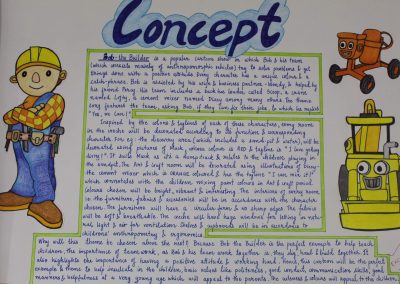 Concept
Bob the Builder is a popular cartoon show in which Bob & his team
(which consists mainly of anthropomorphic vehicles) try to solve problems & get
things done with a positive attitude. Every character has a unique colour & a
catch-phrase. Bob is assisted by his wife & business partner - Wendy & helped by
his friend Percy. His team includes a backhoe loader called Scoop, a crane
named Lofty, a cement mixer named Dizzy among many others. The theme
song features the team, asking Bob, if they have for their plan & which he replies
"Yes, we can!"
Inspired by the colors & taglines of each of these characters, every room
in the creche will be decorated according to its function & corresponding
character. For eg - the discovery area (which includes a sand-pit & water), will be
decorated using pictures of Muck, whose colour is RED & tagline is "I love getting
dirty!" It suits Muck as it's a dump-truck & relates to the children playing in
the sandpit. The Art & Craft room will be decorated using illustrations of Dizzy-
the cement mixer which is orange coloured & has the tagline "I can mix it!"
which correlates with the children mixing paint colours in Art & craft period.
Colours chosen will be bright, vibrant & interesting. The interiors of every room
in the furniture, fabrics & accessories will be in accordance with the character
chosen. The furniture will have a circular form & no sharp edges. The fabrics
will be soft & breathable. The creche will have huge windows for letting in natu-
ral light & air for ventilation. Shelves & cupboards will be in accordance to
children's anthropometry & ergonomics.
Why will this theme be chosen above the rest? Because Bob the Builder is the perfect example to help teach
children, the importance of teamwork, as Bob & his team work together as they dig, haul & build together. It
also highlights the importance of having a positive attitude & working hard. Hence, this custom will be the perfect
example & theme to help inculcate in the children, basic values like politeness, good conduct, communication skills, good
manners & helpfulness at a very young age which will appeal to the parents. The colours & shapes will appeal to the children.